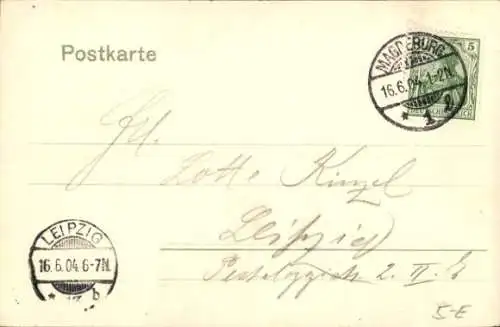 Postkarte
MAGDEBURG
16.6.04.1-2N.
* 1
5
Frl.
Lotte Kinzel
Leipzig
Pestalozzistr. 2. II.
LEIPZIG
16.6.04.6-7N.
* b
5-E